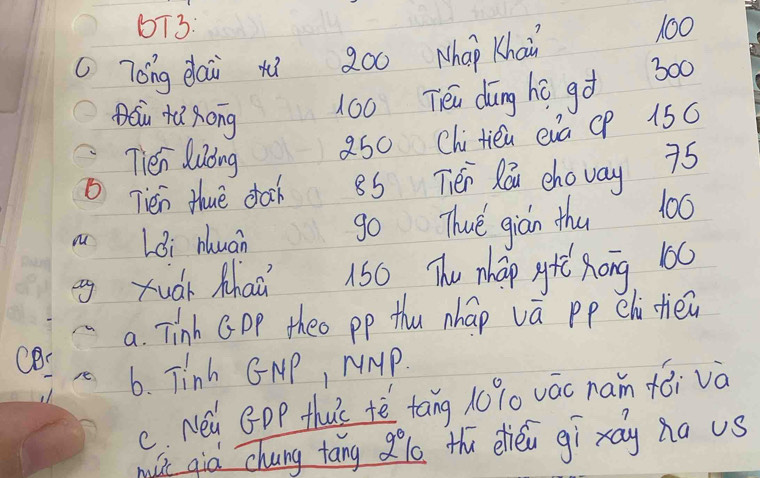 BT3:
Tổng đầu tư 200 Nhập Khẩu 100
Đầu tư ròng 100 Tiêu dùng hộ gđ 300
Tiền lương 250 Chi tiêu của CP 150
Tiền thuê đất 85 Tiền lãi cho vay 75
Lợi nhuận 90 Thuế gián thu 100
Xuất khẩu 150 Thu nhập ytế ròng 100
a. Tính GDP theo pp thu nhập và pp chi tiêu
b. Tính GNP, NNP.
c. Nếu GDP thực tế tăng 10% vào năm tới và
mức giá chung tăng 2% thì điều gì xảy ra vs